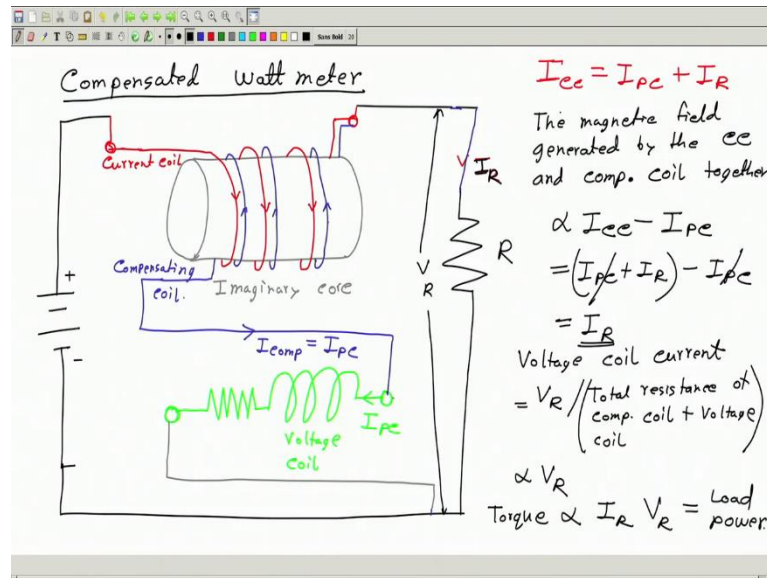 T
Sans Bold 20
Compensated Wattmeter
Current coil
Compensating
coil.
Imaginary core
I_comp = I_PC
I_PC
Voltage
coil
+
-
V
R
I_R
R
I_CC = I_PC + I_R
The magnetic field
generated by the CC
and comp. coil together
∝ I_CC - I_PC
= (I_PC + I_R) - I_PC
= I_R
Voltage coil current
= V_R / (Total resistance of
comp. coil + Voltage
coil)
∝ V_R
Torque ∝ I_R V_R = Load
power.